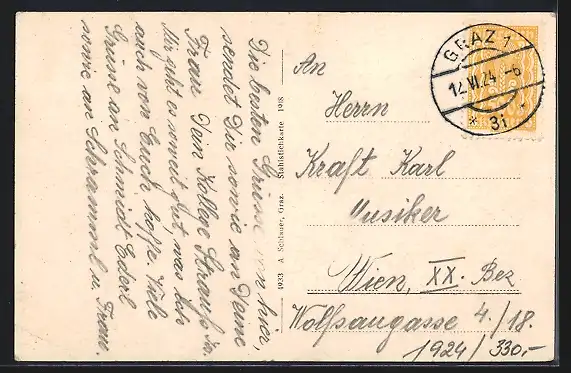 Die besten Grüsse von hier,
sendet Dir sowie an Deine
Frau Dein Kollege Straus Jo.
Mir geht es soweit gut, was ich
auch von Euch hoffe. Viele
Grüße an Schmidt Ederl
sowie an Schramml u. Frau.
1933 A. Schlauer, Graz. Stahlstichkarte 1918
An
Herrn
Kraft Karl
Musiker
Wien, XX. Bez
Wolfsaugasse 4./18.
1924/330,-
GRAZ 1
12.VI.24 -6
* 3i